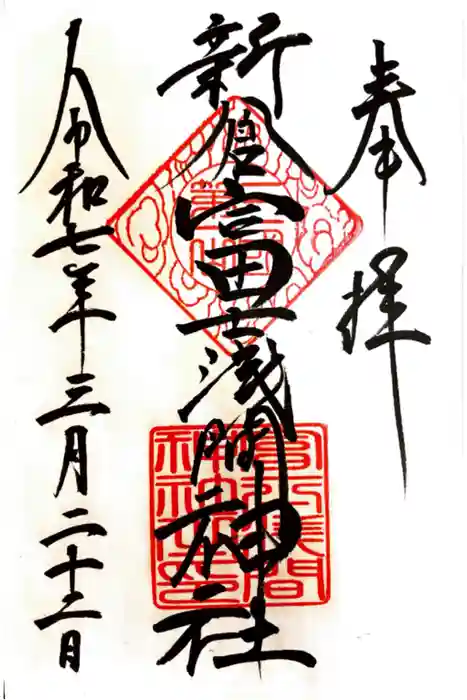 奉拝
新倉富士浅間神社
令和七年三月二十二日